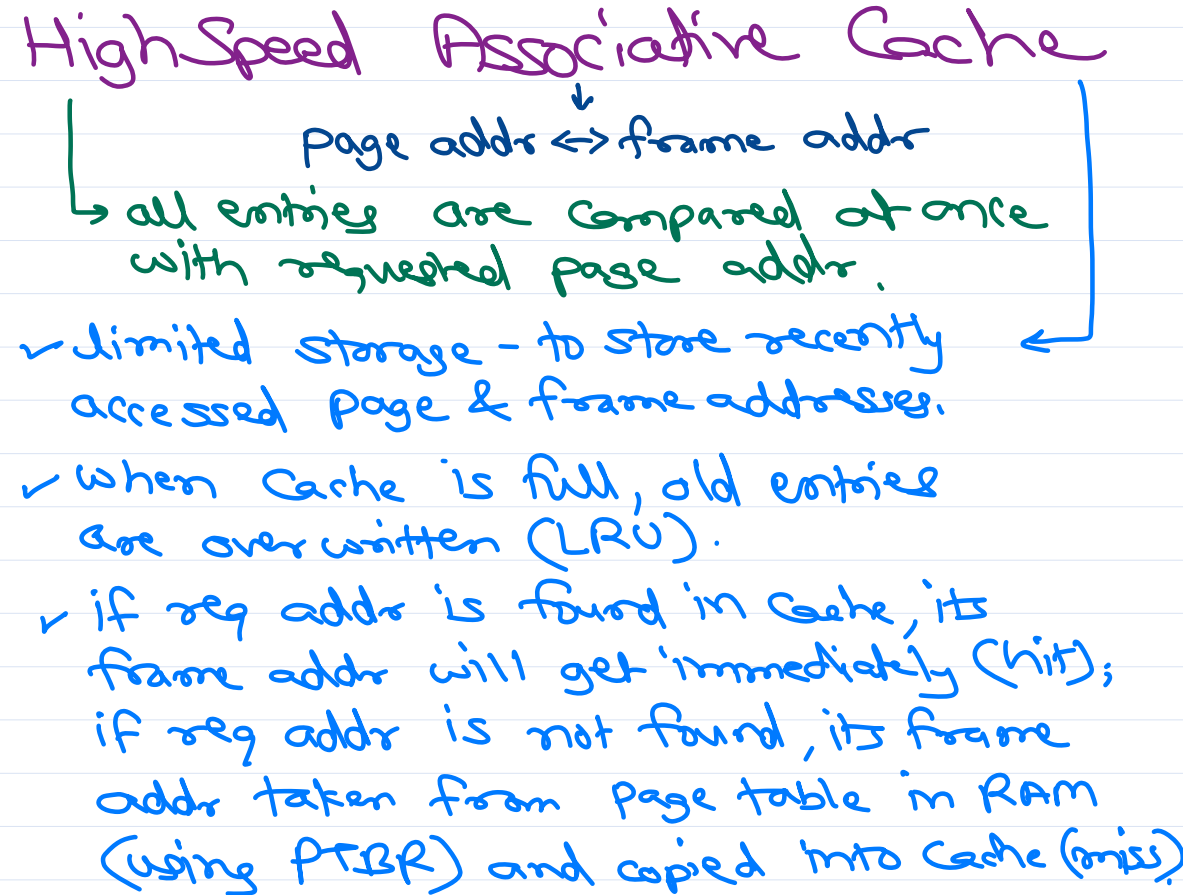 HighSpeed Associative Cache
page addr <-> frame addr
all entries are compared at once
with requested page addr.
limited storage - to store recently
accessed page & frame addresses.
when cache is full, old entries
are overwritten (LRU).
if req addr is found in cache, its
frame addr will get immediately (hit);
if req addr is not found, its frame
addr taken from page table in RAM
(using PTBR) and copied into cache (miss).